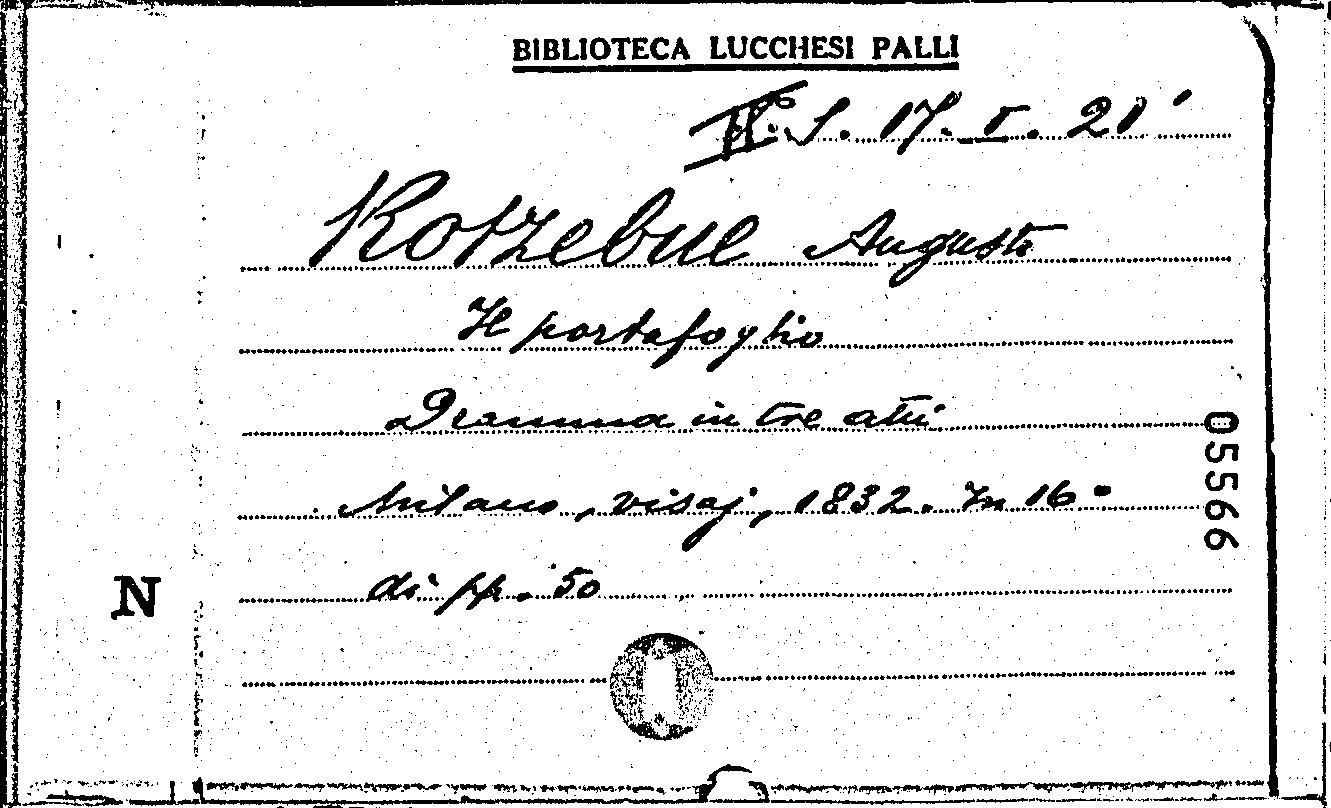 BIBLIOTECA LUCCHESI PALLI
S. 17. V. 21
Kotzebue Augusto
Il portafoglio
Dramma in tre atti
Milano, Visaj, 1832. In 16°
di pp. 50
05566
N